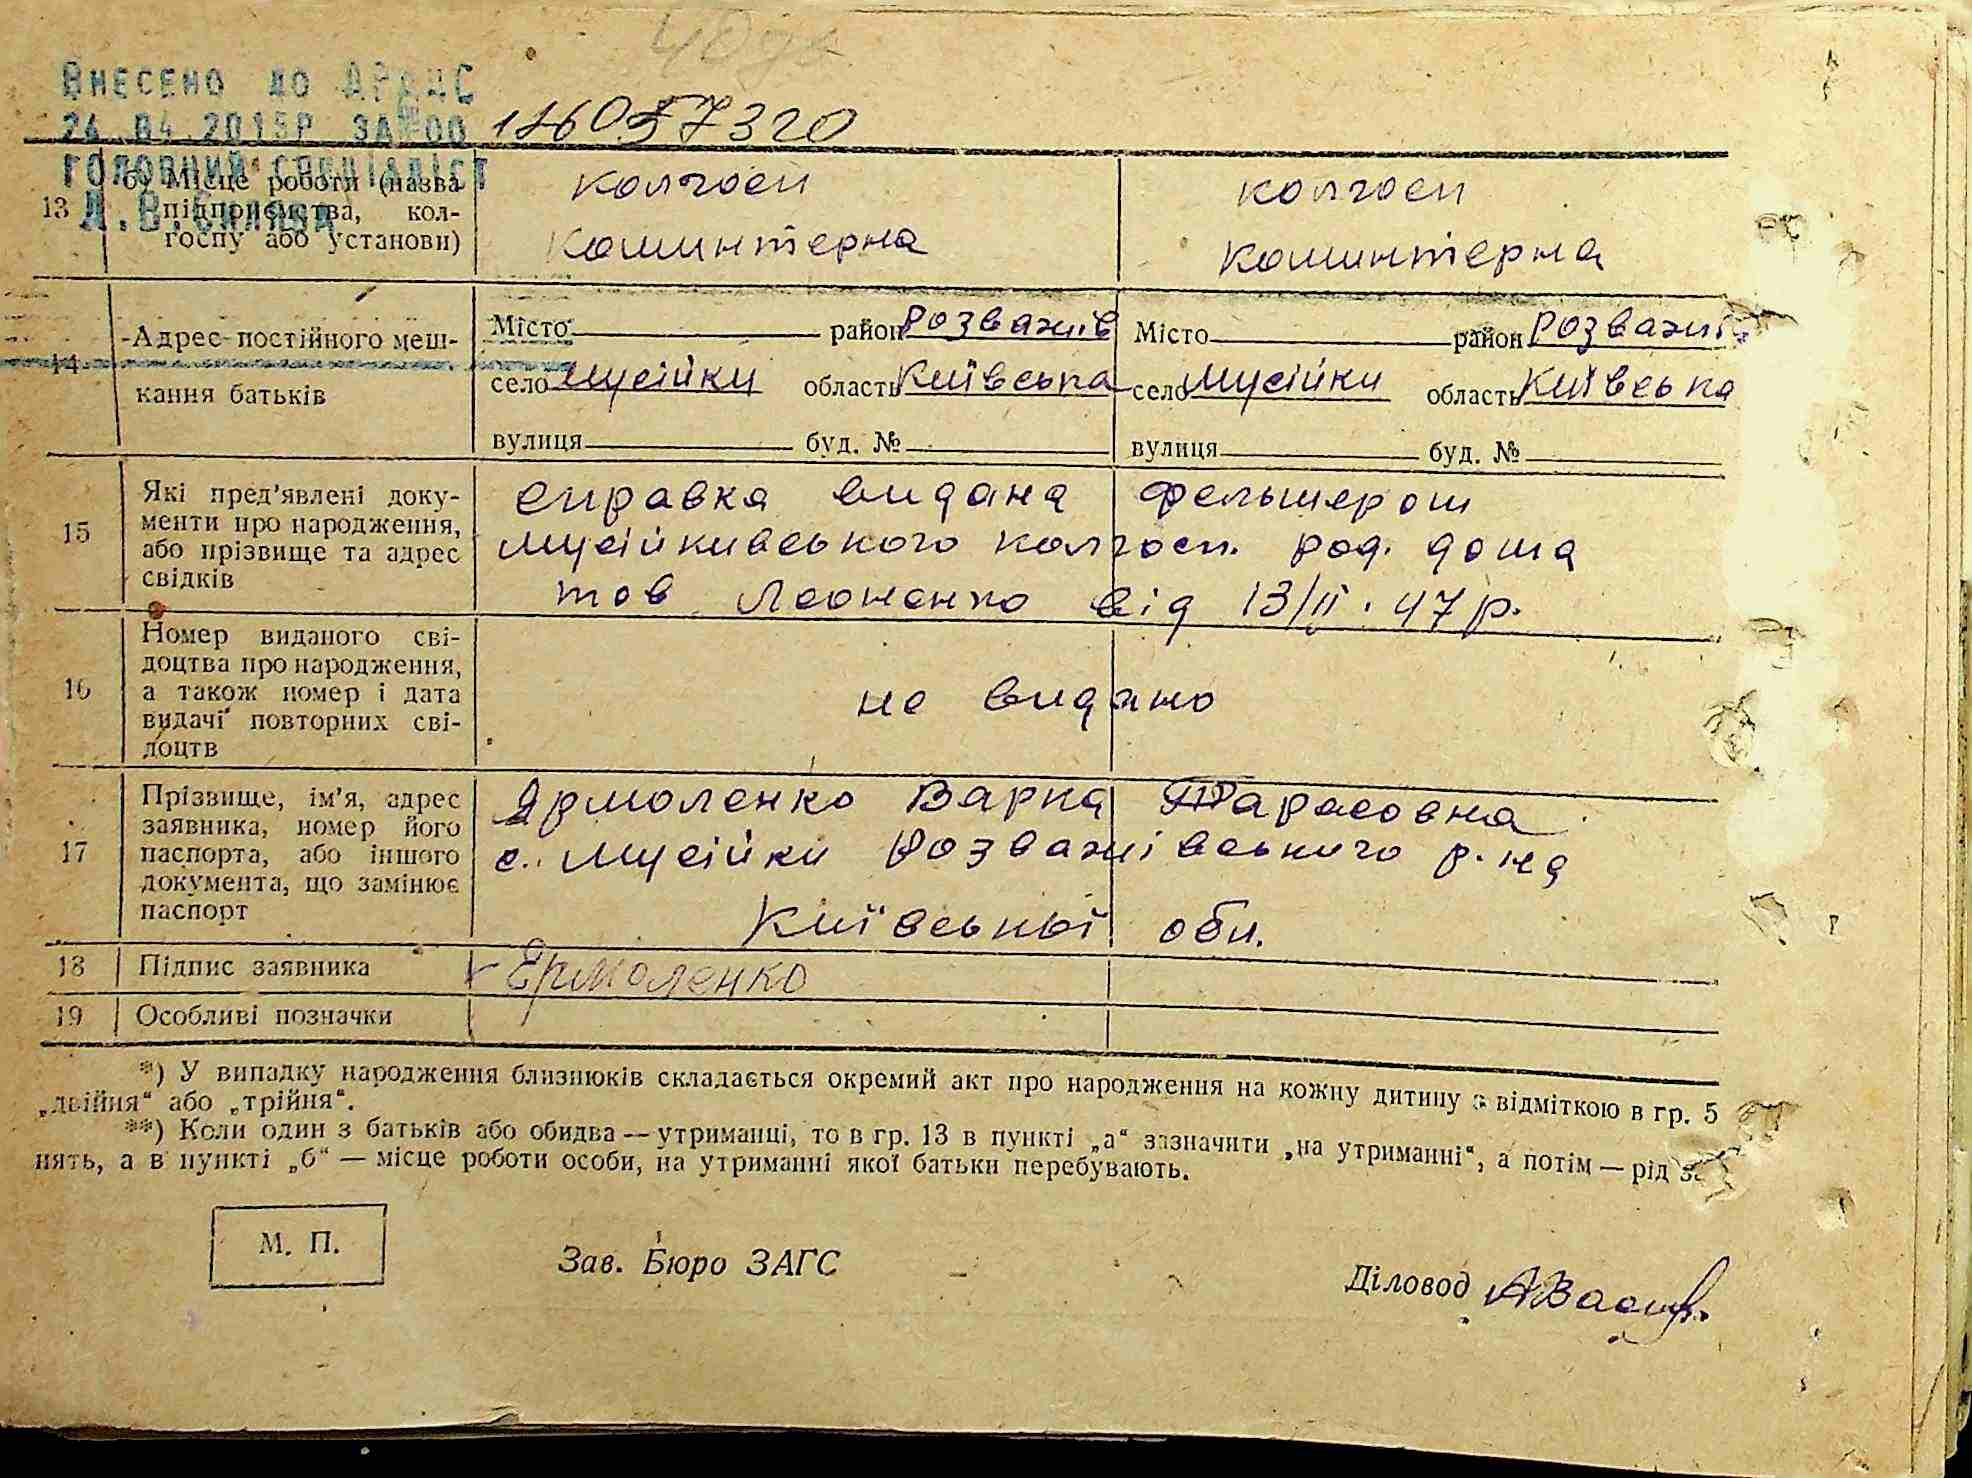 Внесено до АРАЦС
26 04 2015р за № 00 126057320
головний спеціаліст
13 б) Місце роботи (назва підприємства, колгоспу або установи)
колгосп
Коминтерна
колгосп
Коминтерна
14 Адрес постійного мешкання батьків
Місто район Розважів
село Мусійки область Київська
вулиця буд. №
Місто район Розважів
село Мусійки область Київська
вулиця буд. №
15 Які пред'явлені доку-
менти про народження,
або прізвище та адрес
свідків
справка видана фельшером
Мусійкивського колгосп. род. дома
тов Леоненко від 13/II. 47 р.
16 Номер виданого сві-
доцтва про народження,
а також номер і дата
видачі повторних сві-
доцтв
не видано
17 Прізвище, ім'я, адрес
заявника, номер його
паспорта, або іншого
документа, що замінює
паспорт
Ярмоленко Варка Тарасовна
с. Мусійки Розважівського р-на
Київської обл.
18 Підпис заявника Ермоленко
19 Особливі позначки
*) У випадку народження близнюків складається окремий акт про народження на кожну дитину з відміткою в гр. 5
„двійня“ або „трійня“.
**) Коли один з батьків або обидва — утриманці, то в гр. 13 в пункті „а“ зазначити „на утриманні“, а потім — рід за-
нять, а в пункті „б“ — місце роботи особи, на утриманні якої батьки перебувають.
М. П.
Зав. Бюро ЗАГС
Діловод